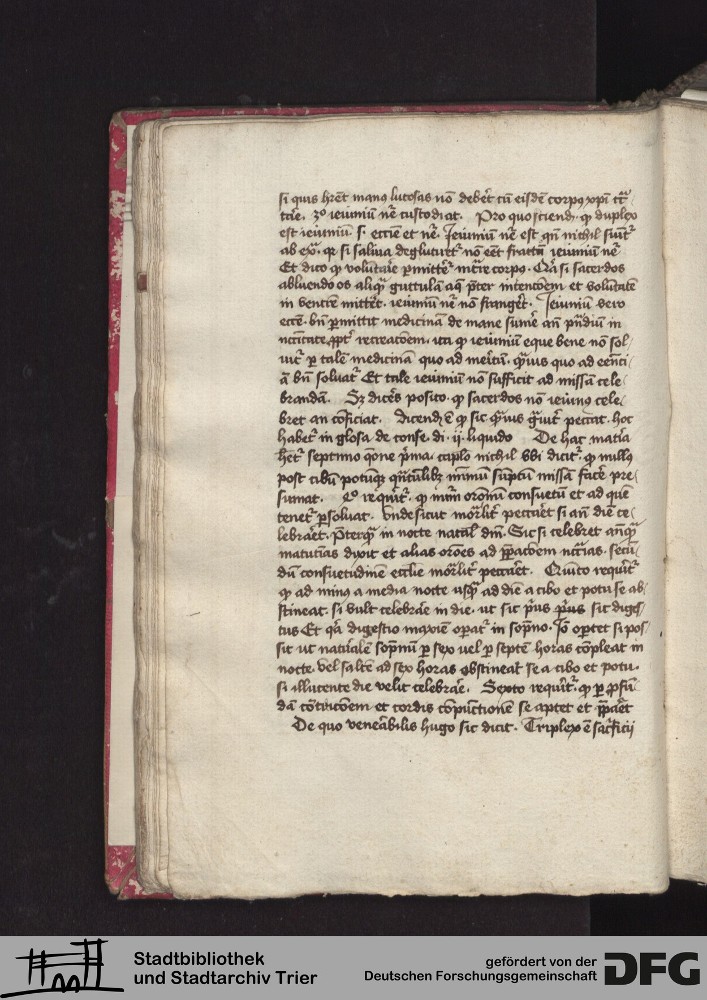 si quis hret manus lutosas nō debet cū eisdē corpus xpi tct̄
tare. 3º ieiuniū nr̄e custodiat. Pro quo sciend. qp duplex
est ieiuniū. s. eccīe et nr̄e. Ieiuniū nr̄e est qn̄ nichil sūit
ab ext̄. qr si saliua deglutiret nō eēt fractū ieiuniū nr̄e
Et dico qp voluntarie pmittet intrare corpus. Qr̄a si sacerdos
abluendo os aliquā guttulā aque pter intencōem et volūtatē
in ventrē mittet. ieiuniū nr̄e nō franget. Ieiuniū vero
eccīe. bn̄ pmittit medicinā de mane sumē an̄ prandiū in
ncc̄itate. ppt̄ recreacōem. ita qp ieiuniū eque bene nō sol/
uit p talē medicinā quo ad meritū. quis quo ad eēnci/
ā bn̄ soluat Et tale ieiuniū nō sufficit ad missā cele/
brandā. Sz dices posito. qp sacerdos nō ieiunus cele/
bret an cōficiat. Dicend ē qp sic quis grauit peccat. hoc
habet in glosa de conse. di. ii. liquido De hac matīa
het septimo qōne prima. caplo nichil vbi dicit. qp nullus
post cibū potūqz quātulūlibz minimū sumptū missā facē pre/
sumat. 4º requirit. qp matutinū oronum consuetū et ad quē
tenet psoluat. vnde sicut mortlit peccaret si an̄ diē ce/
lebraret. pterqā in nocte natal dm̄. Sic si celebret anqā
matutinas dixit et alias orōes ad ppacōem nccrias. secū/
dū consuetudinē eccīie mortlit peccaret. Quīto requirit
qp ad minus a media nocte usqz ad diē a cibo et potu se ab/
stineat. si vult celebrare in die. ut sic prius prius sit diges/
tus Et qr̄a digestio maxiē opat in sopno. Io optet si pos/
sit ut naturalē sopnū p sex uel p septē horas cōpleat in
nocte. vel saltē ad sex horas abstineat se a cibo et potu.
si illucente die velit celebrare. Sexto requirit. qp p pfū/
dā cōtricōem et cordis cōpunctionē se aptet et pparet
De quo venerabilis hugo sic dicit. Triplex ē sacrificii
Stadtbibliothek
und Stadtarchiv Trier
gefördert von der
Deutschen Forschungsgemeinschaft
DFG